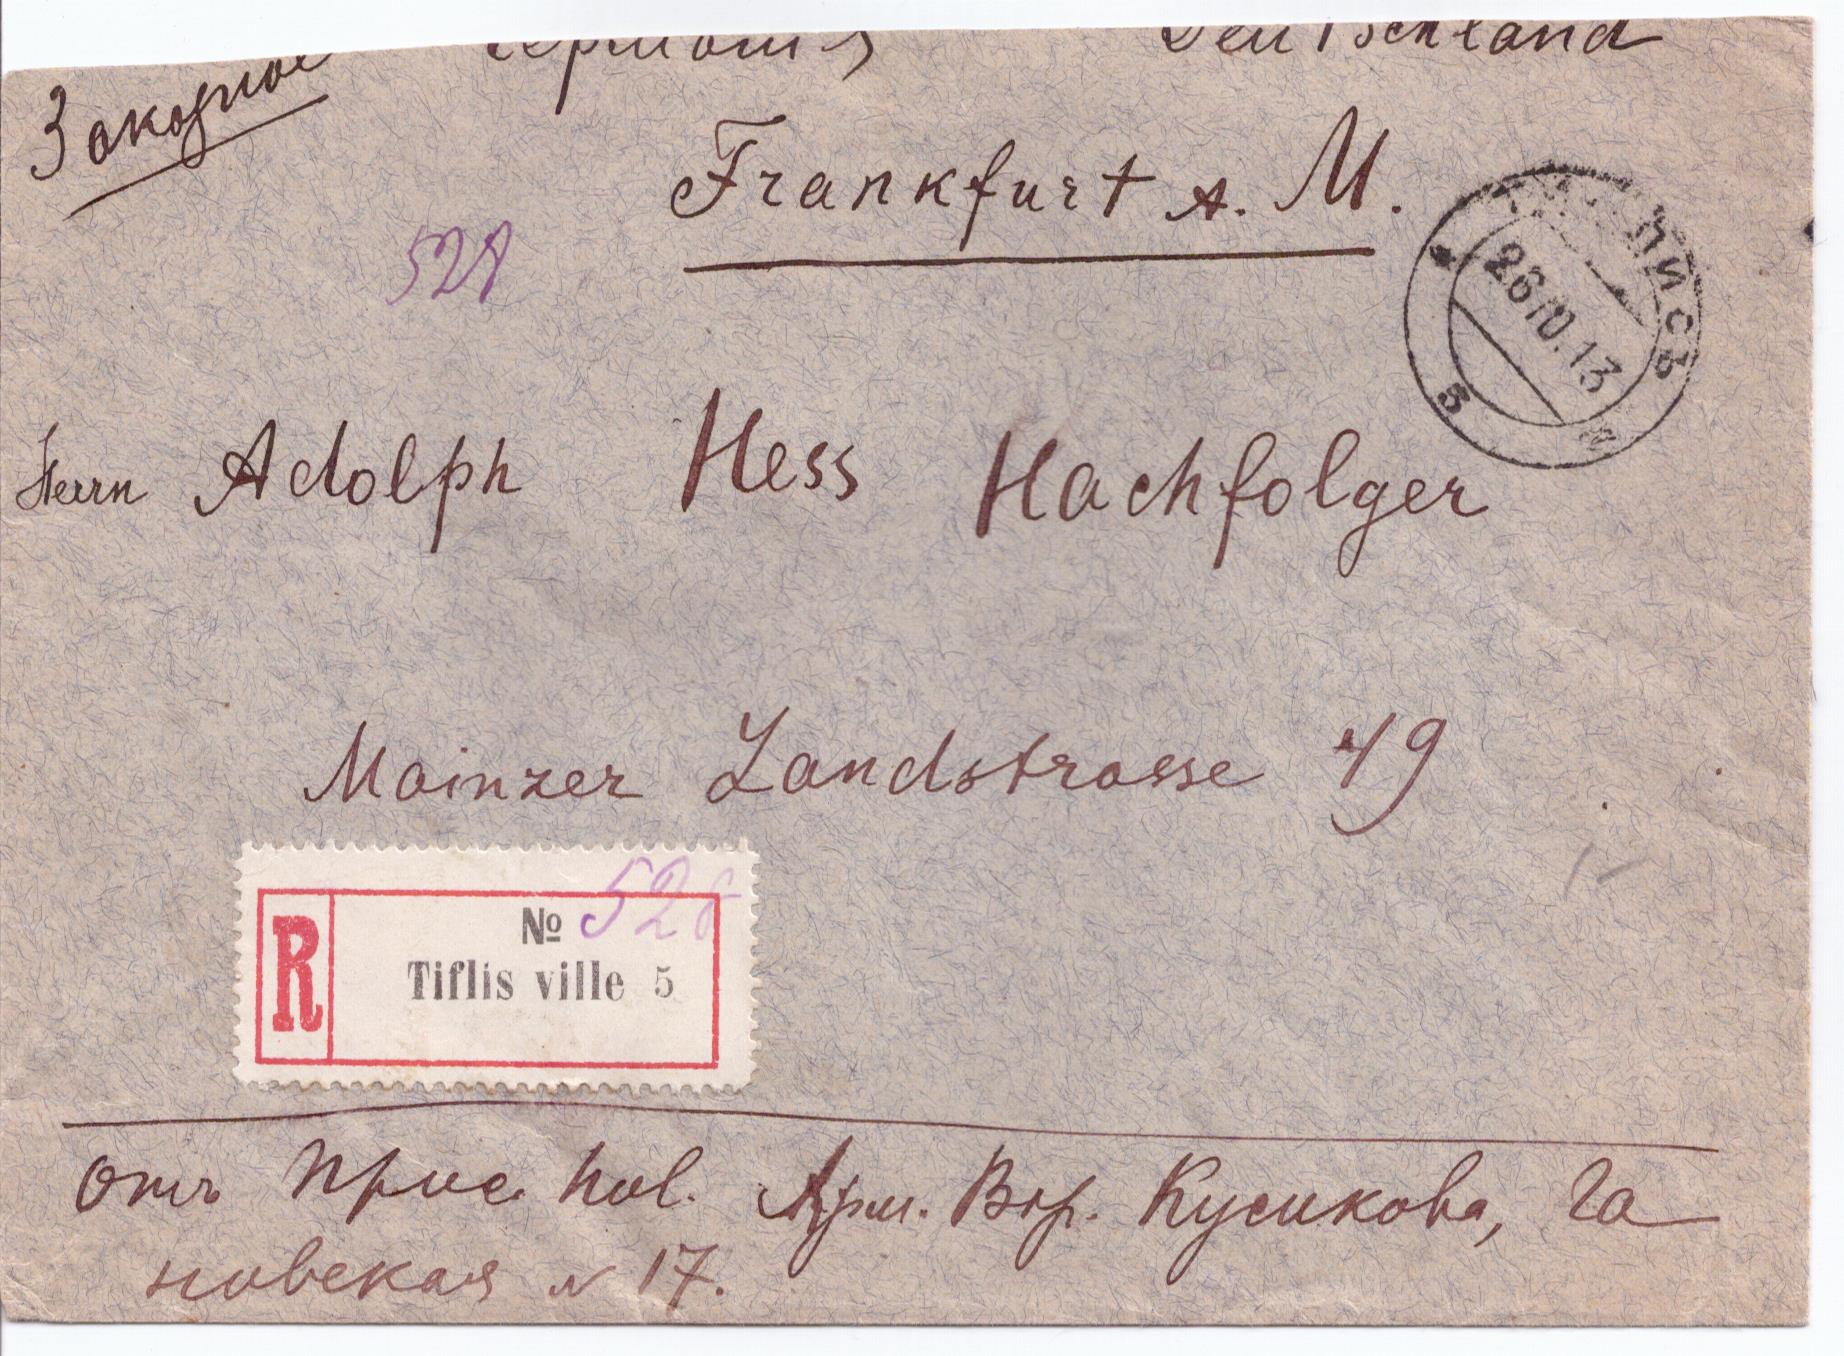 Заказное
Германія Deutschland
Frankfurt a. M.
528
26.10.13
5
Herrn Adolph Hess Nachfolger
Mainzer Landstrasse 49
R
№ 528
Tiflis ville 5
Отъ Прис. Пов. Арт. Кусикова, Га
новская № 17.